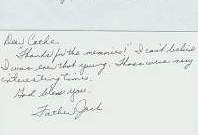 Dear Cache,
"Thanks for the memories!" I can't believe
I was ever that young. Those were very
interesting times.
God bless you.
Father Jack